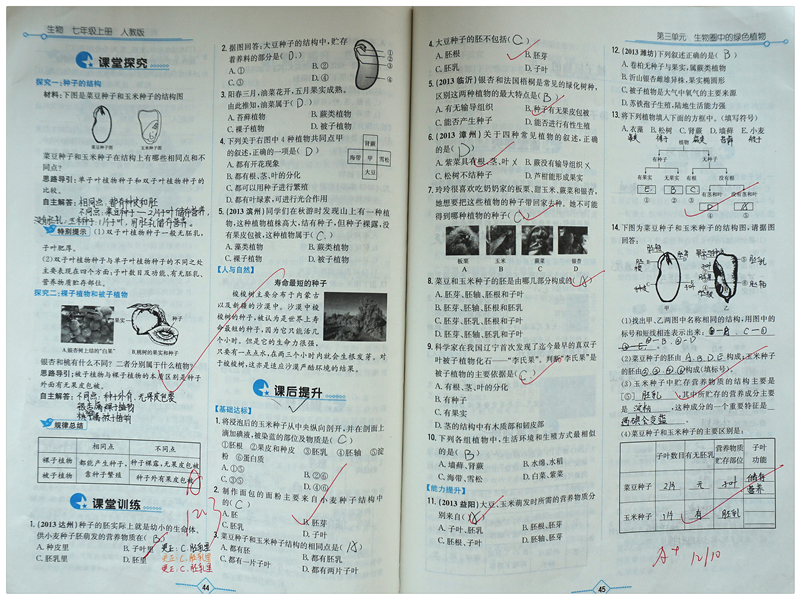 生物 七年级上册 人教版
课堂探究
探究一:种子的结构
材料:下图是菜豆种子和玉米种子的结构图
菜豆种子 玉米种子
菜豆种子和玉米种子在结构上有哪些相同点和不
同点?
思路导引:单子叶植物种子和双子叶植物种子的
比较。
自主解答:相同点:都有种皮和胚
特别提示 (1)双子叶植物种子一般无胚乳,
子叶肥厚。
(2)双子叶植物种子与单子叶植物种子的不同之处
主要表现在四个方面:子叶数目及功能、有无胚乳、
营养物质贮存部位。
探究二:裸子植物和被子植物
果实
种子
A.银杏树上结的“白果” B.桃树的果实和种子
银杏和桃有什么不同? 二者分别属于什么植物?
思路导引:被子植物与裸子植物的本质区别是种子
外面有无果皮包被。
自主解答:不同点:种子外有无果皮包裹
规律总结
相同点 不同点
裸子植物 都能产生种子, 种子裸露,无果皮包被
被子植物 靠种子繁殖 种子外有果皮包被
课堂训练
1.(2013达州)种子的胚实际上就是幼小的生命体,
供小麦种子胚萌发的营养物质在( B )
A.种皮里 B.子叶里
C.胚乳里 D.胚里
更正:C.胚乳里
更正:C.胚乳里
更正:C.胚乳里
2.据图回答:大豆种子的结构中,贮存
着养料的部分是( D )
A.① B.②
C.③ D.④
3.阳春三月,油菜花开,五月果实成熟。
由此推知,油菜属于( D )
A.苔藓植物 B.蕨类植物
C.裸子植物 D.被子植物
4.下列关于右图中4种植物共同点甲
的叙述,正确的一项是( D )
A.都有开花现象
B.都有根、茎、叶的分化
C.都可以用种子进行繁殖
D.都有叶绿素,可进行光合作用
肾蕨
海带 甲 雪松
大豆
5.(2013滨州)同学们在秋游时发现山上有一种植
物,这种植物植株高大,结有种子,但种子裸露,没
有果皮包被,这种植物属于( C )
A.藻类植物 B.蕨类植物
C.裸子植物 D.被子植物
【人与自然】
寿命最短的种子
梭梭树主要分布于内蒙古
以及新疆的沙漠中。沙漠中梭
梭树的种子,被认为是世界上寿
命最短的种子,因为它只能活几
个小时。但是它的生命力很强,
只要有一点点水,在两三个小时内就会生根发芽。对
于梭梭树,这亦是适应沙漠严酷环境的结果。
课后提升
【基础达标】
1.将浸泡后的玉米种子从中央纵向剖开,并在剖面上
滴加碘液,被染蓝的部位及物质是( C )
①胚根 ②果皮和种皮 ③胚乳 ④胚轴 ⑤淀
粉 ⑥蛋白质
A.①⑤ B.②⑥
C.③⑤ D.④⑥
2.制作面包的面粉主要来自小麦种子结构中
的( C )
A.胚 B.胚芽
C.胚乳 D.子叶
3.菜豆种子和玉米种子结构的相同点是( A )
A.都有胚 B.都有胚乳
C.都有一片子叶 D.都有两片子叶
44
4.大豆种子的胚不包括( C )
A.胚根 B.胚芽
C.胚乳 D.子叶
5.(2013临沂)银杏和法国梧桐是常见的绿化树种,
区别这两种植物的最大特点是( B )
A.有无输导组织 B.种子有无果皮包被
C.能否产生种子 D.能否进行有性生殖
6.(2013漳州)关于四种常见植物的叙述,正确
的是( D )
A.紫菜具有根、茎、叶 B.蕨没有输导组织
C.松树不结种子 D.芦柑能形成果实
7.玲玲很喜欢吃奶奶家的板栗、甜玉米、蕨菜和银杏。
她想要把这些植物的种子带回家去种。她不可能
得到哪种植物的种子( C )
板栗 玉米 蕨菜 银杏
A B C D
8.菜豆和玉米种子的胚是由哪几部分构成的( A )
A.胚芽、胚轴、胚根和子叶
B.胚芽、胚轴、胚根和胚乳
C.胚乳、胚芽、胚根和子叶
D.胚乳、胚轴、胚根和子叶
9.科学家在我国辽宁首次发现了迄今最早的真双子
叶被子植物化石——“李氏果”。判断“李氏果”是
被子植物的主要依据是( C )
A.有根、茎、叶的分化
B.有种子
C.有果实
D.茎的结构中有木质部和韧皮部
10.下列各组植物中,生活环境和生殖方式最相似
的是( B )
A.墙藓、肾蕨 B.水绵、水稻
C.海带、雪松 D.白菜、紫菜
【能力提升】
11.(2013益阳)大豆、玉米萌发时所需的营养物质分
别来自( A )
A.子叶、胚乳 B.胚根、胚芽
C.胚根、子叶 D.胚轴、胚芽
第三单元 生物圈中的绿色植物
12.(2013潍坊)下列叙述正确的是( B )
A.卷柏无种子与果实,属蕨类植物
B.沂山银杏雌雄异株,果实椭圆形
C.被子植物是大气中氧气的主要来源
D.苏铁孢子生殖,陆地生活能力强
13.将下列植物填入下面的方框中。(填写符号)
A.衣藻 B.松树 C.肾蕨 D.墙藓 E.小麦
植物
有种子 无种子
有果实 无果实 有根 没有根
有茎和叶 没有茎和叶
E B C
D A
① ② ③ ④ ⑤
14.下图为菜豆种子和玉米种子的结构图,请据图
回答:
甲 乙
(1)找出甲、乙两图中名称相同的结构,用图中的
标号和短线相连表示出来:
(2)菜豆种子的胚由A、B、D、E构成;玉米种子
的胚由构成(填标号)。
(3)玉米种子中贮存营养物质的结构主要是
胚乳,其中所贮存的营养成分主要
是淀粉,这种成分的一个重要特征是
遇碘会变蓝。
(4)菜豆种子和玉米种子的主要区别是:
子叶数目 有无胚乳 营养物质贮存部位 子叶功能
菜豆种子 2片 无 子叶 储存营养
玉米种子 1片 有 胚乳
A+ 12/10
45